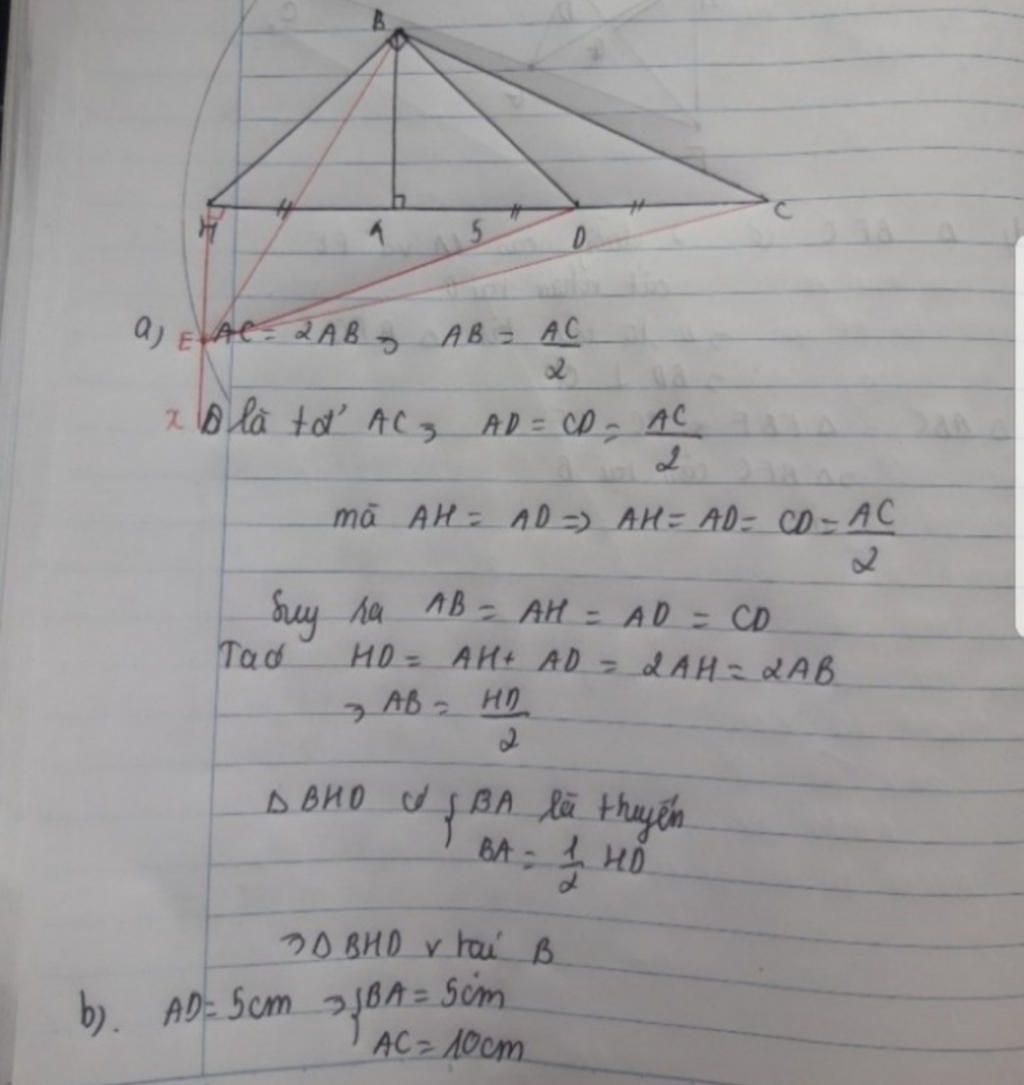 B
H A 5 D C
E
x
a) AC = 2AB => AB = AC/2
D là tđ' AC => AD = CD = AC/2
mà AH = AD => AH = AD = CD = AC/2
Suy ra AB = AH = AD = CD
Ta có HD = AH + AD = 2AH = 2AB
=> AB = HD/2
Δ BHD có { BA là tr tuyến
BA = 1/2 HD
=> Δ BHD v tại B
b). AD = 5cm => { BA = 5cm
AC = 10cm